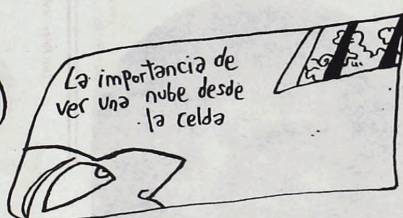 La importancia de
ver una nube desde
la celda